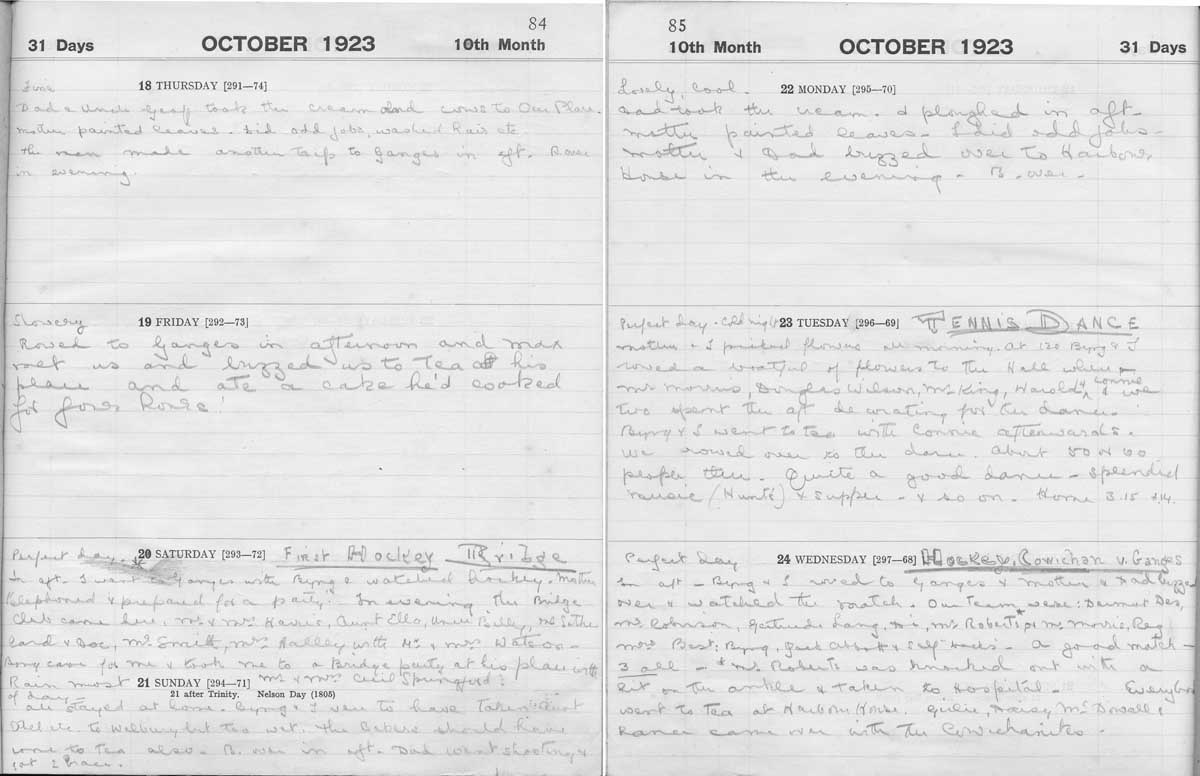 84
31 Days OCTOBER 1923 10th Month
18 THURSDAY [291—74]
Fine
Dad & Uncle Geoff took the cream and cows to Our Place.
Mother painted leaves. Did odd jobs, washed hair etc.
The men made another trip to Ganges in aft. B. over
in evening.
19 FRIDAY [292—73]
Showery
Rowed to Ganges in afternoon and Max
met us and buzzed us to tea at his
place and ate a cake he'd cooked
for
20 SATURDAY [293—72] First Hockey Bridge
Perfect day.
In aft. I went to Ganges with Byng & watched hockey. Mother
telephoned & prepared for a party. In evening the Bridge
Club came here, Mr & Mrs Harris, Aunt Ella, Uncle Billy,
and Doc, Mr Smith, Mrs Halley with Mr & Mrs Watson -
Byng came for me & took me to a Bridge party at his place with
Mr & Mrs Cecil Springford.
21 SUNDAY [294—71]
21 after Trinity. Nelson Day (1805)
Rain most
of day -
all stayed at home. Byng & I were to have taken
to Welbury but too wet. The should have
come to tea also - B. over in aft. Dad went shooting &
got 2 brace.
85
10th Month OCTOBER 1923 31 Days
22 MONDAY [295—70]
Lovely, cool.
Dad took the cream & ploughed in aft -
Mother painted leaves - I did odd jobs -
Mother & Dad buzzed over to Harbour
House in the evening - B. over -
23 TUESDAY [296—69] TENNIS DANCE
Perfect day - cold night
Mother & I picked flowers all morning. At 1.20 Byng & I
rowed a boatful of flowers to the Hall where
Mr Morris, Douglas Wilson, Mr King, Harold, Connie & we
two spent the aft decorating for the dance.
Byng & I went to tea with Connie afterwards.
We rowed over to the dance. About 50 or 60
people there. Quite a good dance - splendid
music (Hunts) & supper - & so on. Home 3.15 a.m.
24 WEDNESDAY [297—68] Hockey, Cowichan v. Ganges
Perfect day
In aft - Byng & I rowed to Ganges & Mother & Dad buzzed
over & watched the match. Our Team were: Dermot
Mr Robinson, Gertrude Lang, Mr Roberts & Mr Morris, Reg
Mrs Best, Byng, Abbott & - A good match -
3 all - Mr Roberts was knocked out with a
hit on the ankle & taken to Hospital - Everybody
went to Tea at Harbour House. Daisy, McDowell,
came over with the Cowichanites -